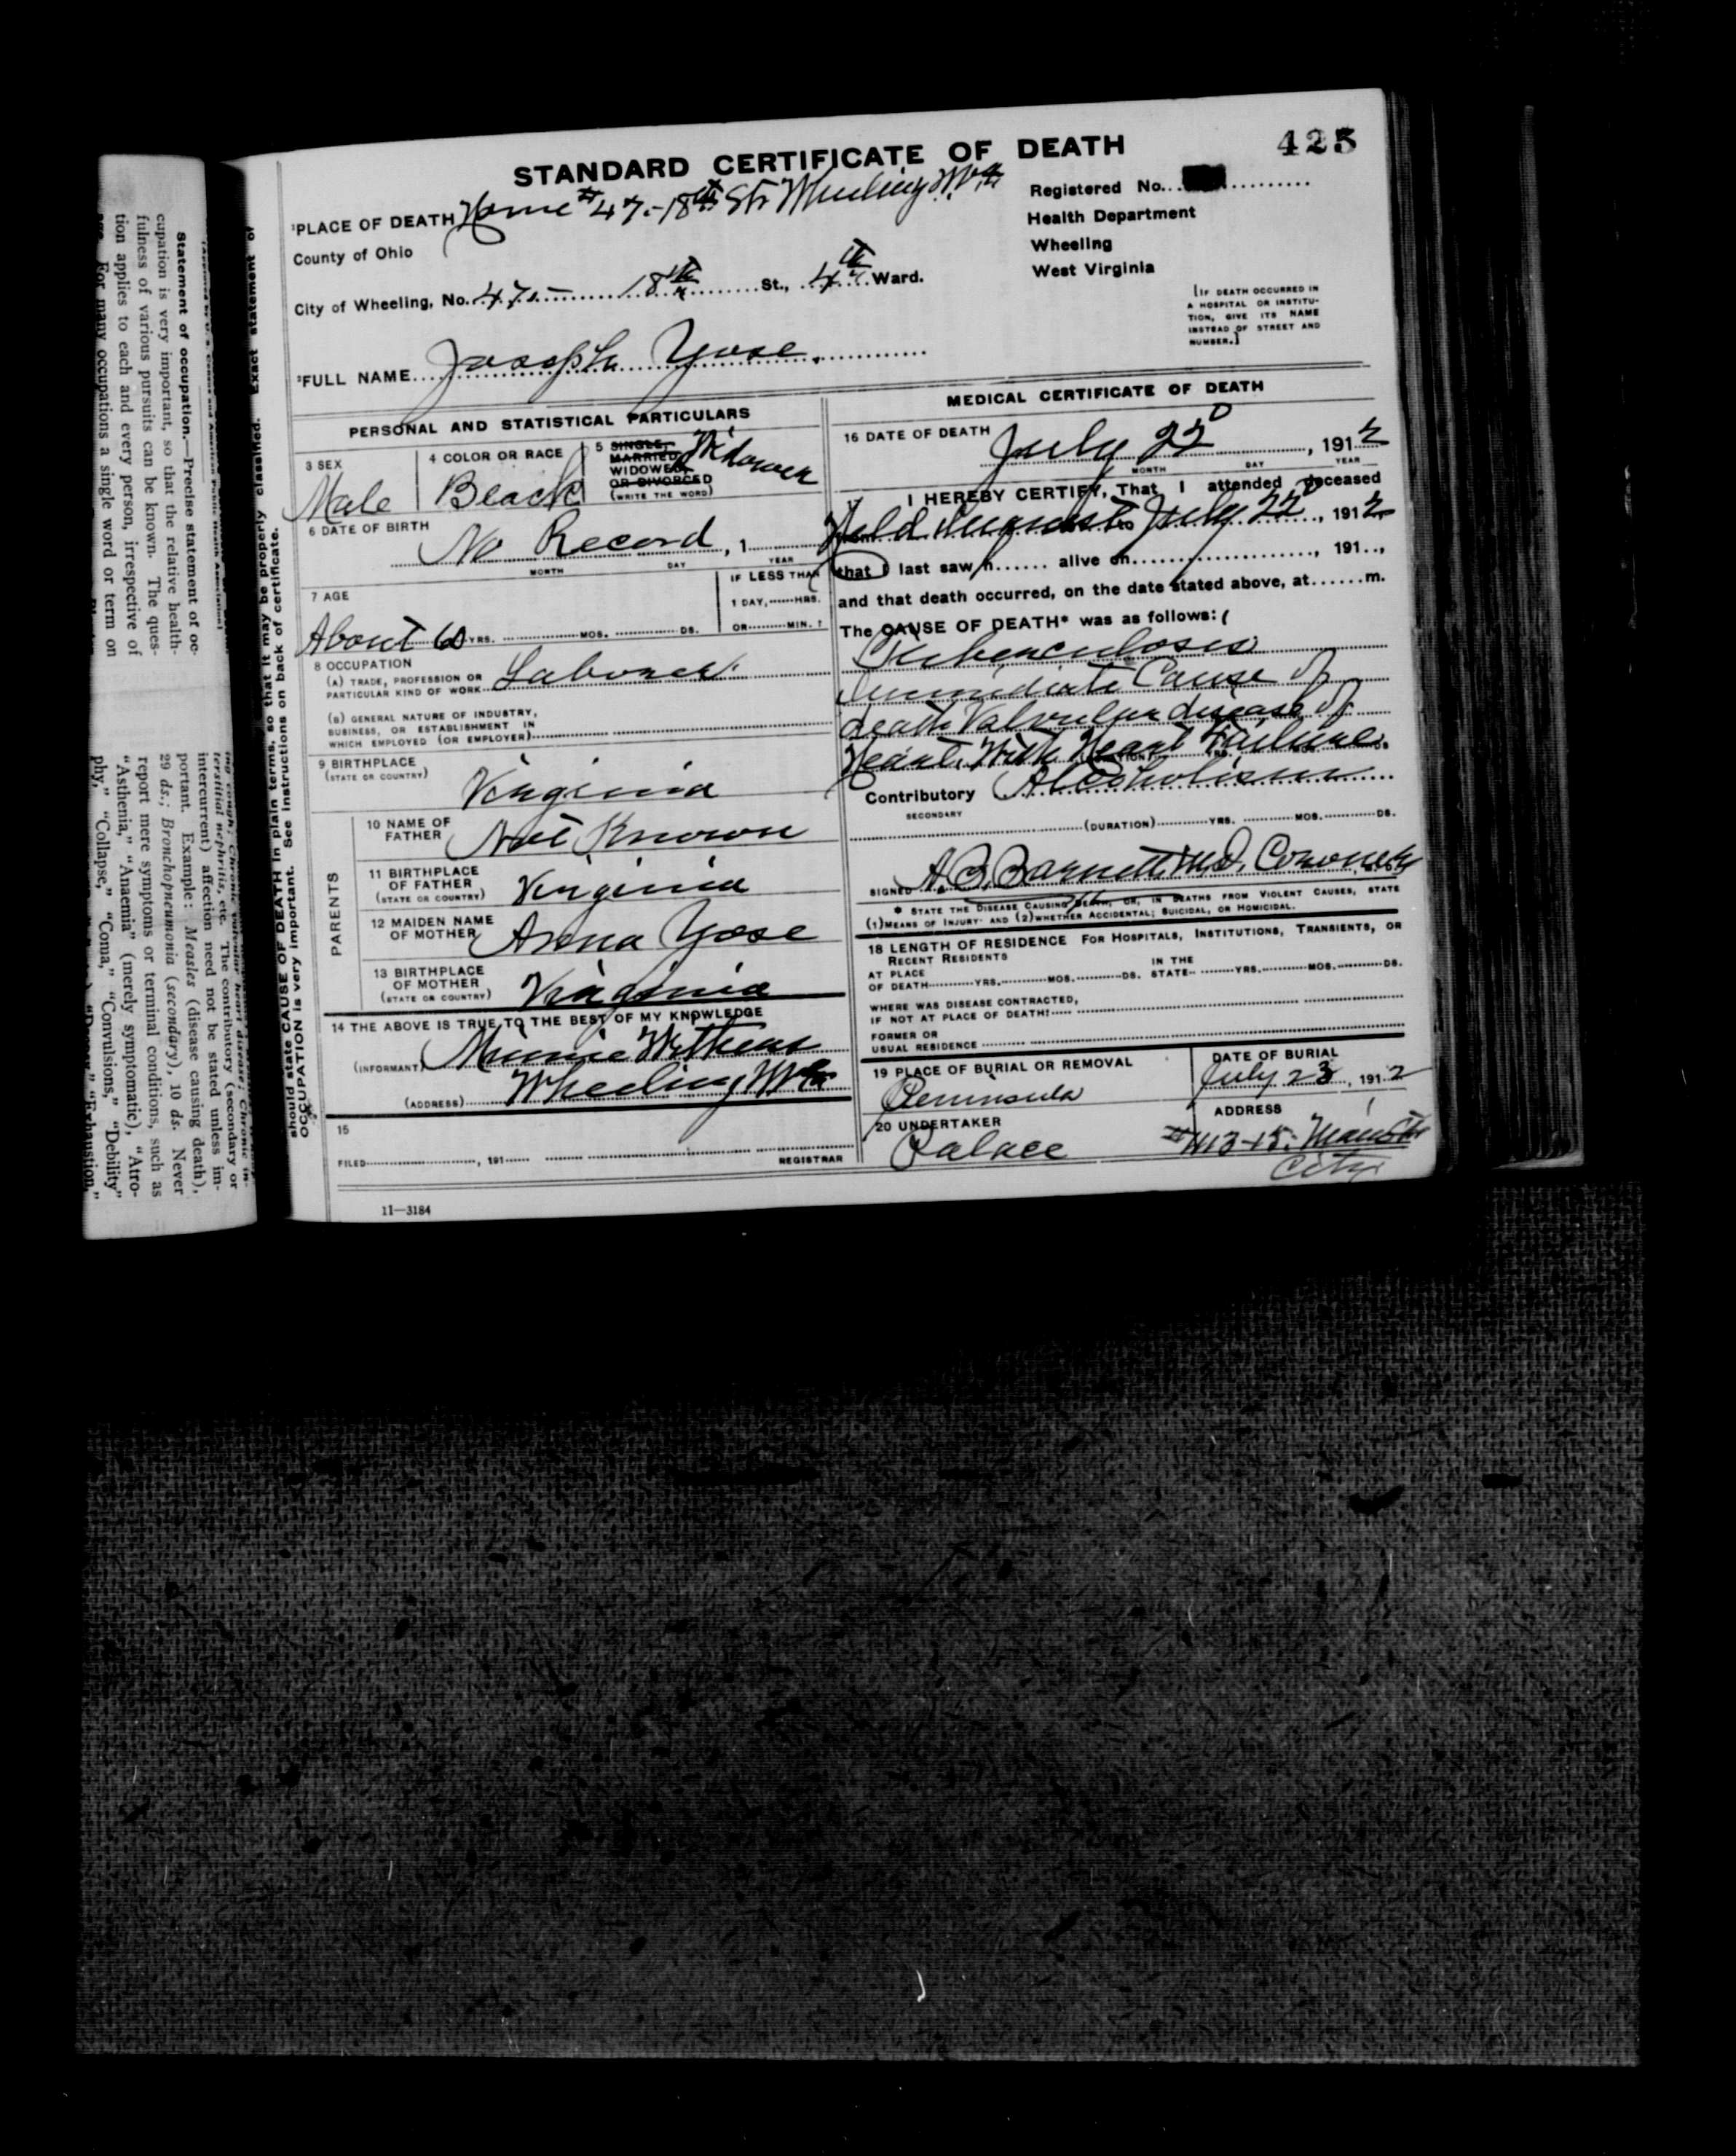 425
STANDARD CERTIFICATE OF DEATH
1PLACE OF DEATH Home # 47-18th St Wheeling W.Va
Registered No.
County of Ohio
Health Department
Wheeling
West Virginia
City of Wheeling, No. 47 - 18th St., 4th Ward.
[IF DEATH OCCURRED IN
A HOSPITAL OR INSTITU-
TION, GIVE ITS NAME
INSTEAD OF STREET AND
NUMBER.]
2FULL NAME Joseph Yose
PERSONAL AND STATISTICAL PARTICULARS
3 SEX
Male
4 COLOR OR RACE
Black
5 SINGLE,
MARRIED,
WIDOWED,
OR DIVORCED
(WRITE THE WORD)
Widower
6 DATE OF BIRTH
No Record, 1
MONTH DAY YEAR
7 AGE
About 60 YRS. MOS. DS.
IF LESS THAN
1 DAY, HRS.
OR MIN.?
8 OCCUPATION
(A) TRADE, PROFESSION OR
PARTICULAR KIND OF WORK Laborer
(B) GENERAL NATURE OF INDUSTRY,
BUSINESS, OR ESTABLISHMENT IN
WHICH EMPLOYED (OR EMPLOYER)
9 BIRTHPLACE
(STATE OR COUNTRY)
Virginia
PARENTS
10 NAME OF
FATHER
Not Known
11 BIRTHPLACE
OF FATHER
(STATE OR COUNTRY)
Virginia
12 MAIDEN NAME
OF MOTHER
Anna Yose
13 BIRTHPLACE
OF MOTHER
(STATE OR COUNTRY)
Virginia
14 THE ABOVE IS TRUE TO THE BEST OF MY KNOWLEDGE
(INFORMANT) Minnie Withers
(ADDRESS) Wheeling W Va
15
FILED, 191
REGISTRAR
11—3184
MEDICAL CERTIFICATE OF DEATH
16 DATE OF DEATH
July 22D, 1912
MONTH DAY YEAR
I HEREBY CERTIFY, That I attended deceased
Held Inquest to July 22D, 1912
that I last saw h alive on, 191..,
and that death occurred, on the date stated above, at m.
The CAUSE OF DEATH* was as follows:
Tuberculosis
Immidiate Cause of
death Valvular disease of
Heart. With Heart Failure
Contributory Alcoholism
SECONDARY
(DURATION) YRS. MOS. DS.
SIGNED Barnett M.D. Coroner
* STATE THE DISEASE CAUSING DEATH, OR, IN DEATHS FROM VIOLENT CAUSES, STATE
(1)MEANS OF INJURY; AND (2)WHETHER ACCIDENTAL; SUICIDAL, OR HOMICIDAL.
18 LENGTH OF RESIDENCE FOR HOSPITALS, INSTITUTIONS, TRANSIENTS, OR
RECENT RESIDENTS
AT PLACE
OF DEATH YRS. MOS. DS.
IN THE
STATE YRS. MOS. DS.
WHERE WAS DISEASE CONTRACTED,
IF NOT AT PLACE OF DEATH?
FORMER OR
USUAL RESIDENCE
19 PLACE OF BURIAL OR REMOVAL
Peninsula
DATE OF BURIAL
July 23, 1912
20 UNDERTAKER
Palace
ADDRESS
#1413-15. Main St
City
should state CAUSE OF DEATH in plain terms, so that it may be properly classified. Exact statement of
OCCUPATION is very important. See instructions on back of certificate.
Statement of occupation.—Precise statement of oc-
cupation is very important, so that the relative health-
fulness of various pursuits can be known. The ques-
tion applies to each and every person, irrespective of
age. For many occupations a single word or term on
tersitial nephritis, etc. The contributory (secondary or
intercurrent) affection need not be stated unless im-
portant. Example: Measles (disease causing death),
29 ds.; Bronchopneumonia (secondary), 10 ds. Never
report mere symptoms or terminal conditions, such as
“Asthenia,” “Anaemia” (merely symptomatic), “Atro-
phy,” “Collapse,” “Coma,” “Convulsions,” “Debility”
“Exhaustion,”